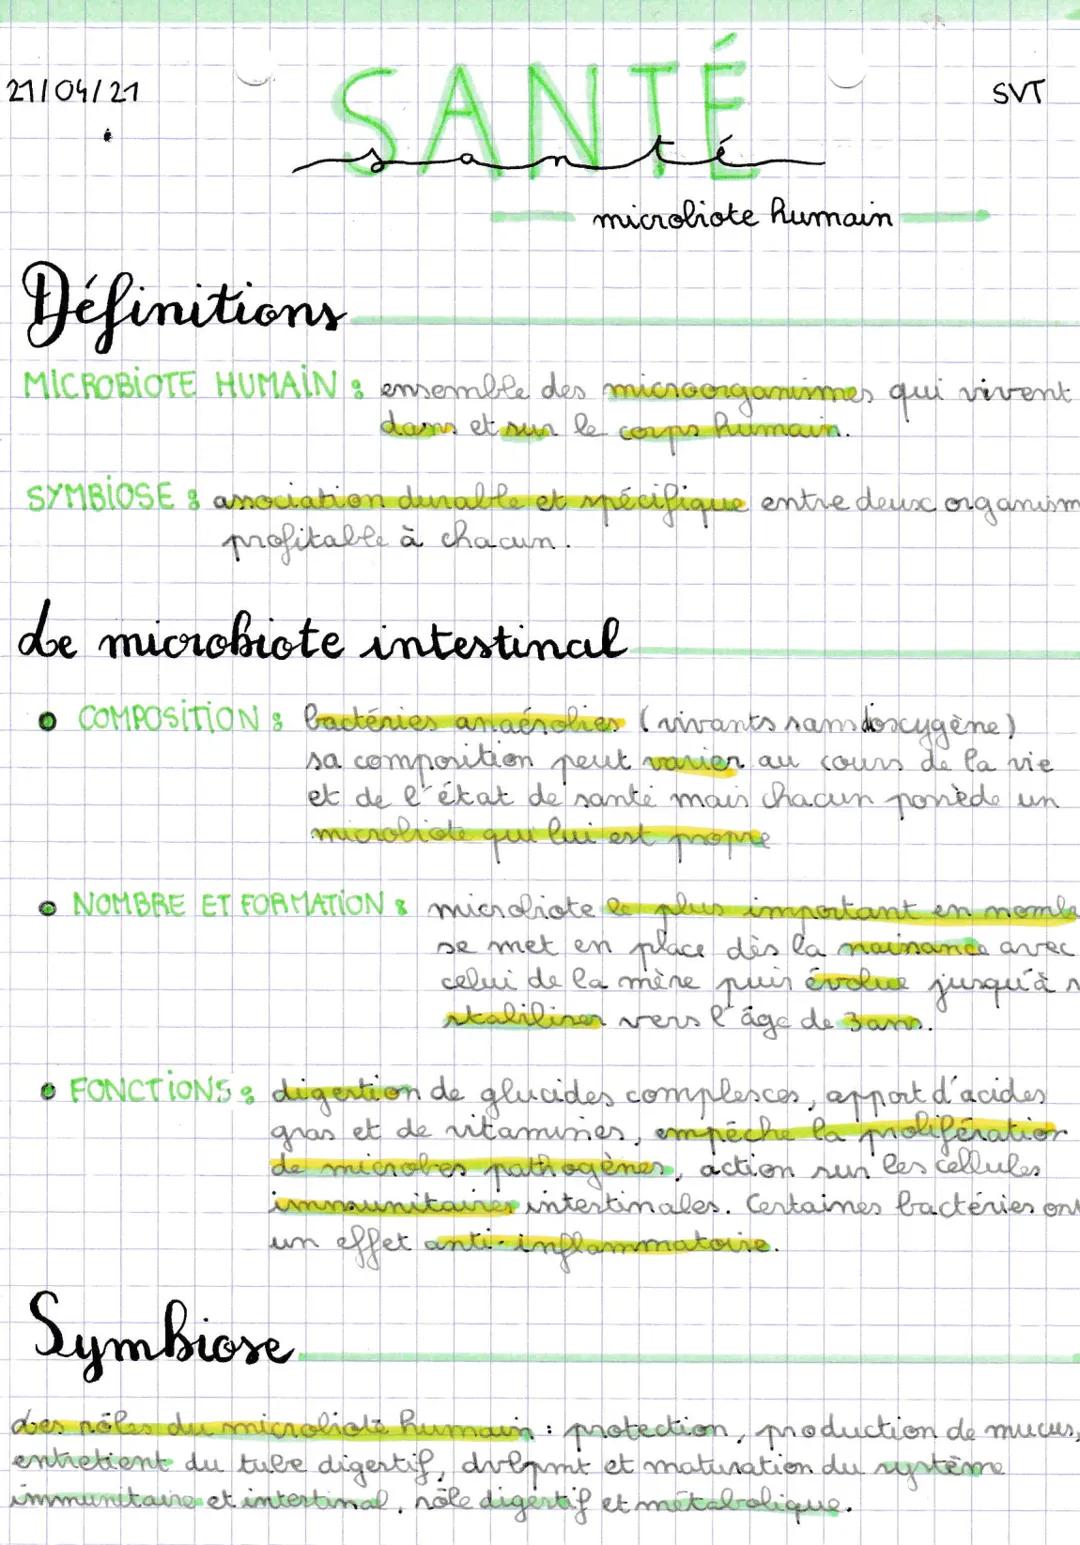 21/04/21
SVT
SANTÉ
santé
microbiote humain
Définitions
MICROBIOTE HUMAIN : ensemble des microorganismes qui vivent
dans et sur le corps humain.
SYMBIOSE : association durable et spécifique entre deux organism
profitable à chacun.
Le microbiote intestinal
COMPOSITION : bactéries anaérobies (vivants sans dioxygène)
sa composition peut varier au cours de la vie
et de l'état de santé mais chacun possède un
microbiote qui lui est propre
NOMBRE ET FORMATION : microbiote le plus important en nomb
se met en place dès la naissance avec
celui de la mère puis évolue jusqu'à s
stabiliser vers l'âge de 3 ans.
FONCTIONS : digestion de glucides complexes, apport d'acides
gras et de vitamines, empêche la prolifération
de microbes pathogènes, action sur les cellules
immunitaires intestinales. Certaines bactéries ont
un effet anti-inflammatoire.
Symbiose
Les rôles du microbiote humain : protection, production de mucus,
entretient du tube digestif, dvlpmt et maturation du système
immunitaire et intestinal, rôle digestif et métabolique.